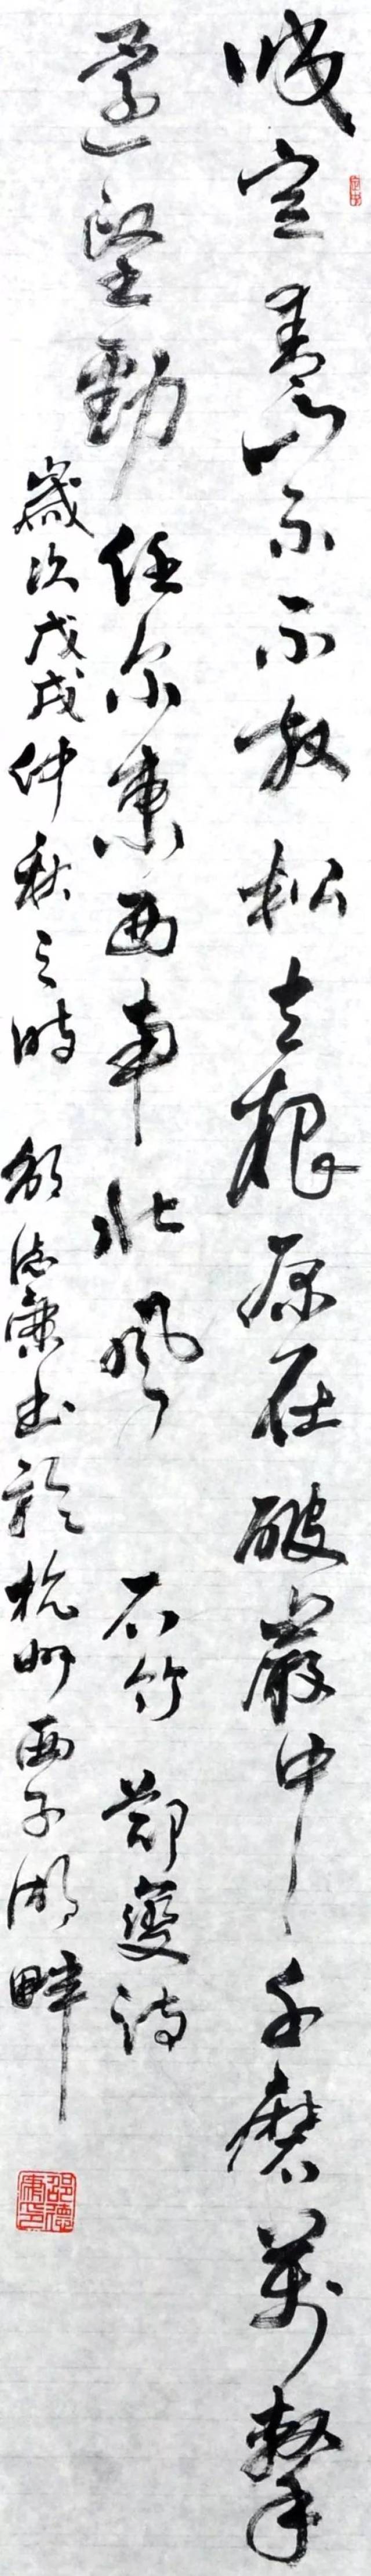 咬定青山不不放松立根原在破巖中千磨萬擊
還堅勁任尔東西南北風 石竹 鄭燮詩
歲次戊戌仲秋之時 邵德康书於杭州西子湖畔
邵德康印